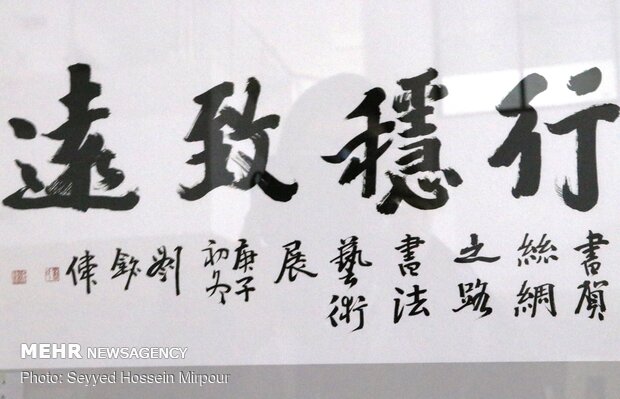 行穩致遠
書賀
絲綢
之路
書法
藝術
展
庚子
初冬
劉
偉
MEHR NEWSAGENCY
Photo: Seyyed Hossein Mirpour